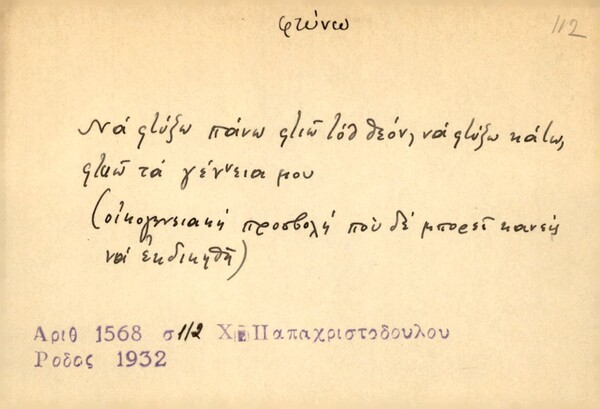 φτύνω
112
Νά φτύξω πάνω φτιῶ τὸθ θεόν, νά φτύξω κάτω,
φτιῶ τά γέννεια μου
(οἰκογενειακή προσβολή πού δέ μπορεῖ κανείς
νά ἐκδικηθῆ)
Αριθ 1568 σ 112 Χ Παπαχριστοδουλου
Ροδος 1932